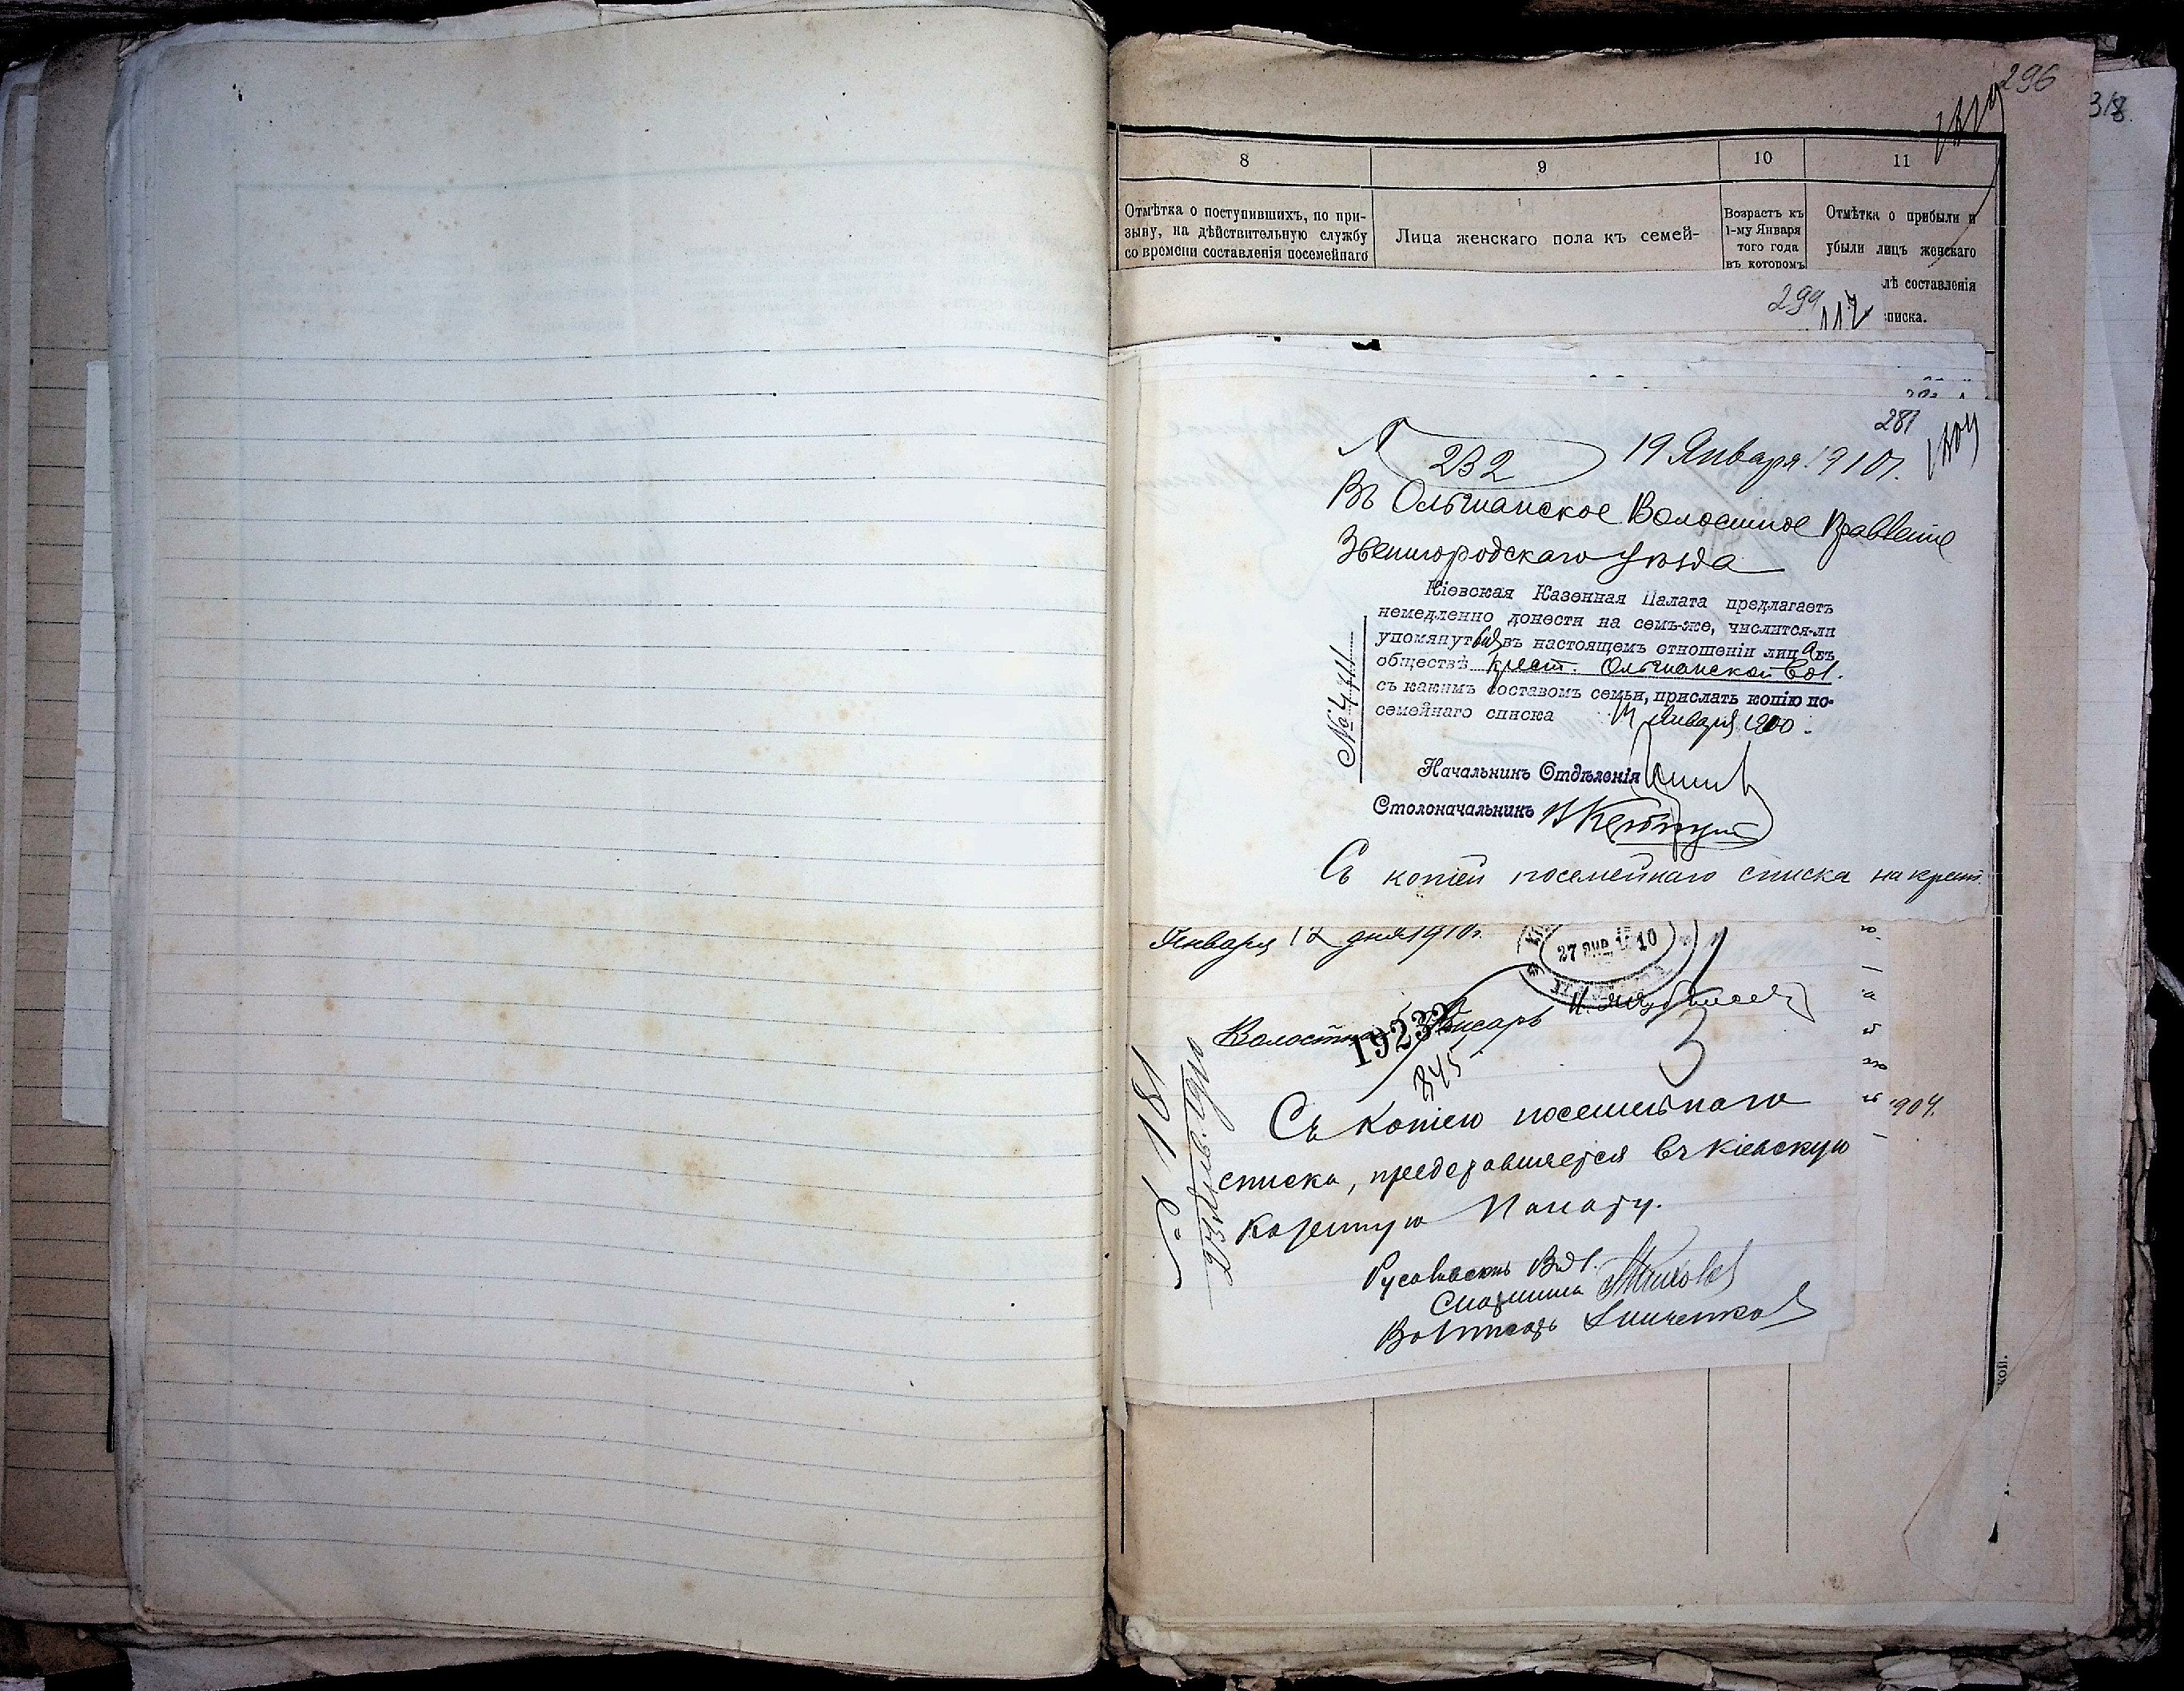 296
318.
8
9
10
11
Отмѣтка о поступившихъ, по при-
зыву, на дѣйствительную службу
со времени составленія посемейнаго
Лица женскаго пола къ семей-
Возрастъ къ
1-му Января
того года
въ которомъ
Отмѣтка о прибыли и
убыли лицъ женскаго
лѣ составленія
списка.
299
281
N 232 19 Января 1910 г.
Въ Ольшанское Волостное Правленіе
Звенигородскаго уѣзда
Кіевская Казенная Палата предлагаетъ
немедленно донести на семъ-же, числится-ли
упомянут въ настоящемъ отношеніи лица въ
обществѣ крест. Ольшанской вол.
съ какимъ составомъ семьи, прислать копію по-
семейнаго списка Января 1910
Начальникъ Отдѣленія
Столоначальникъ
Съ копіей посемейнаго списка на крест.
Января 12 дня 1910 г.
27 ЯНВ 1910
Волостной Писарь
19232
845
3
№ 181
23 Янв. 1910
1904.
Съ копіею посемейнаго
списка, представляется въ Кіевскую
Казенную Палату.
Вол.
Старшина
Вол писарь